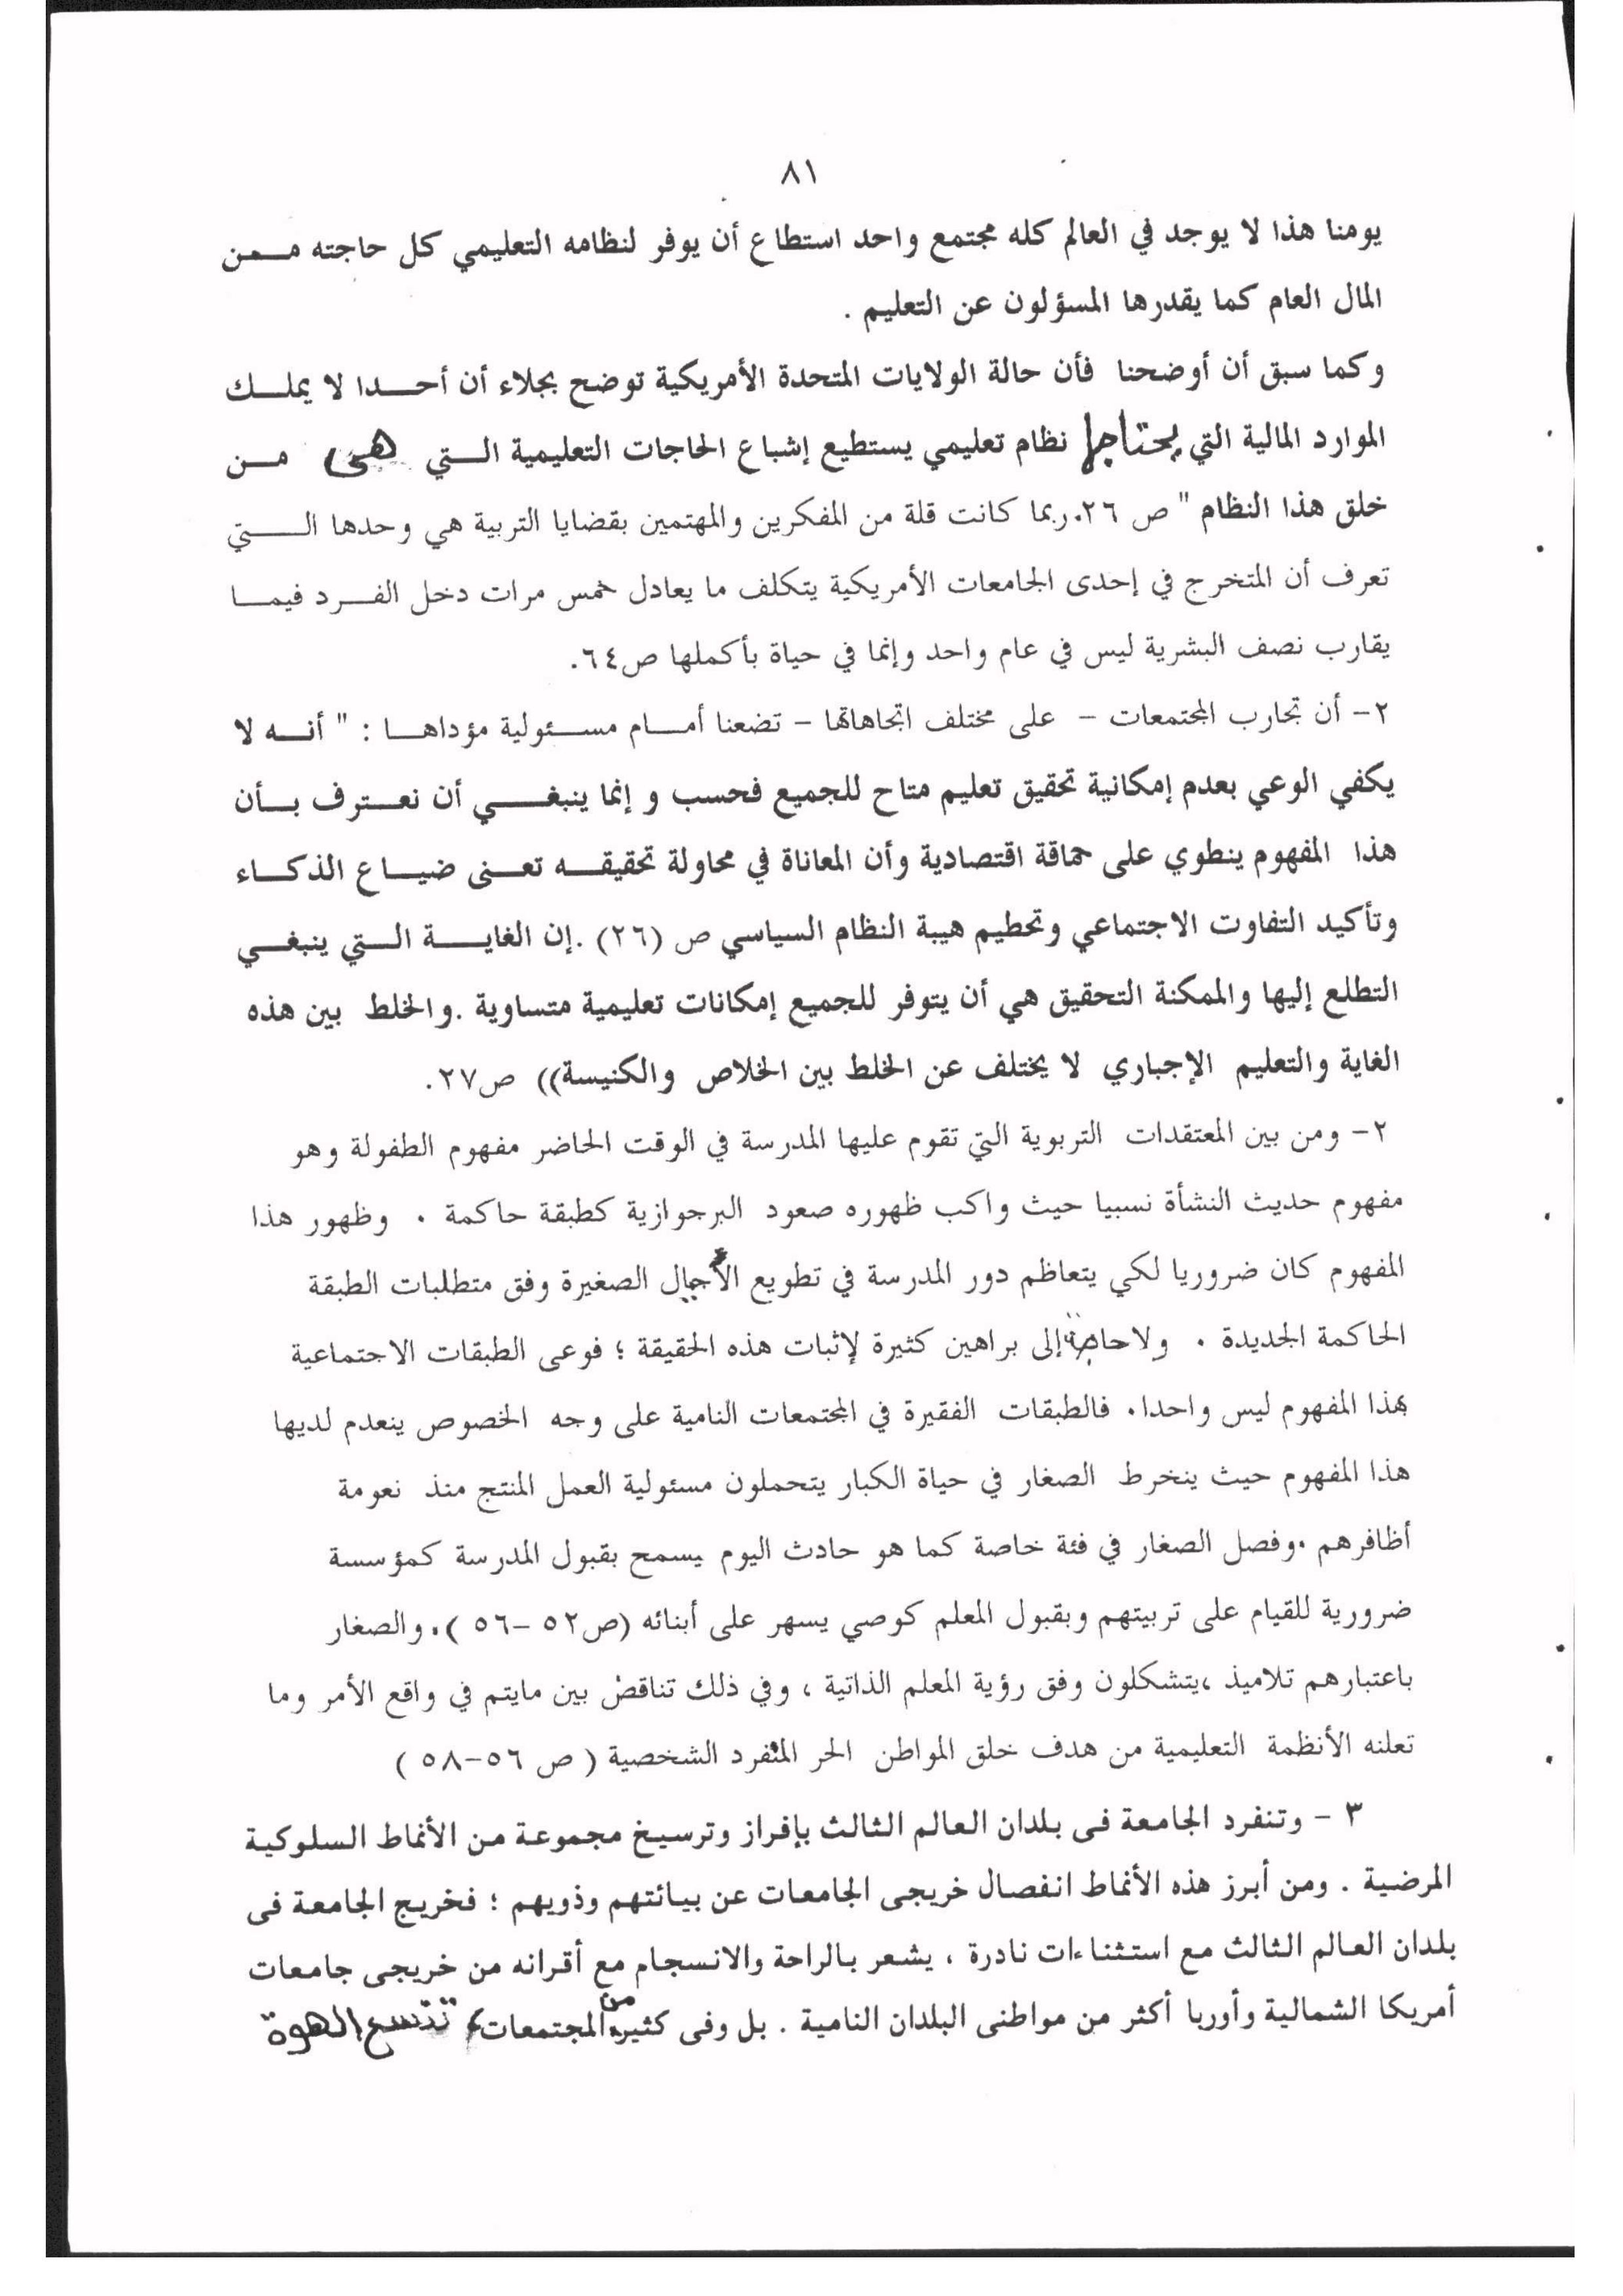 ٨١
يومنا هذا لا يوجد في العالم كله مجتمع واحد استطاع أن يوفر لنظامه التعليمي كل حاجته مــن
المال العام كما يقدرها المسؤلون عن التعليم .
وكما سبق أن أوضحنا فأن حالة الولايات المتحدة الأمريكية توضح بجلاء أن أحــدا لا يملــك
الموارد المالية التي يحتاجها نظام تعليمي يستطيع إشباع الحاجات التعليمية الــتي هى مــن
خلق هذا النظام " ص ٢٦. ربما كانت قلة من المفكرين والمهتمين بقضايا التربية هي وحدها الــتي
تعرف أن المتخرج في إحدى الجامعات الأمريكية يتكلف ما يعادل خمس مرات دخل الفــرد فيمــا
يقارب نصف البشرية ليس في عام واحد وإنما في حياة بأكملها ص٦٤.
٢- أن تجارب المجتمعات - على مختلف اتجاهاتها - تضعنا أمــام مســئولية مؤداهــا : " أنــه لا
يكفي الوعي بعدم إمكانية تحقيق تعليم متاح للجميع فحسب و إنما ينبغــي أن نعــترف بــأن
هذا المفهوم ينطوي على حماقة اقتصادية وأن المعاناة في محاولة تحقيقــه تعــنى ضيــاع الذكــاء
وتأكيد التفاوت الاجتماعي وتحطيم هيبة النظام السياسي ص (٢٦) .إن الغايــة الــتي ينبغــي
التطلع إليها والممكنة التحقيق هي أن يتوفر للجميع إمكانات تعليمية متساوية .والخلط بين هذه
الغاية والتعليم الإجباري لا يختلف عن الخلط بين الخلاص والكنيسة)) ص٢٧.
٢- ومن بين المعتقدات التربوية التي تقوم عليها المدرسة في الوقت الحاضر مفهوم الطفولة وهو
مفهوم حديث النشأة نسبيا حيث واكب ظهوره صعود البرجوازية كطبقة حاكمة . وظهور هذا
المفهوم كان ضروريا لكي يتعاظم دور المدرسة في تطويع الأجيال الصغيرة وفق متطلبات الطبقة
الحاكمة الجديدة . ولاحاجة إلى براهين كثيرة لإثبات هذه الحقيقة ؛ فوعى الطبقات الاجتماعية
بهذا المفهوم ليس واحدا. فالطبقات الفقيرة في المجتمعات النامية على وجه الخصوص ينعدم لديها
هذا المفهوم حيث ينخرط الصغار في حياة الكبار يتحملون مسئولية العمل المنتج منذ نعومة
أظافرهم .وفصل الصغار في فئة خاصة كما هو حادث اليوم يسمح بقبول المدرسة كمؤسسة
ضرورية للقيام على تربيتهم وبقبول المعلم كوصي يسهر على أبنائه (ص٥٢ -٥٦ ). والصغار
باعتبارهم تلاميذ ،يتشكلون وفق رؤية المعلم الذاتية ، وفي ذلك تناقض بين مايتم في واقع الأمر وما
تعلنه الأنظمة التعليمية من هدف خلق المواطن الحر المتفرد الشخصية ( ص ٥٦-٥٨ )
٣ - وتنفرد الجامعة فى بلدان العالم الثالث بإفراز وترسيخ مجموعة من الأنماط السلوكية
المرضية . ومن أبرز هذه الأنماط انفصال خريجى الجامعات عن بيائتهم وذويهم ؛ فخريج الجامعة فى
بلدان العالم الثالث مع استثناءات نادرة ، يشعر بالراحة والانسجام مع أقرانه من خريجى جامعات
أمريكا الشمالية وأوربا أكثر من مواطنى البلدان النامية . بل وفى كثير من المجتمعات، تتسع الهوة